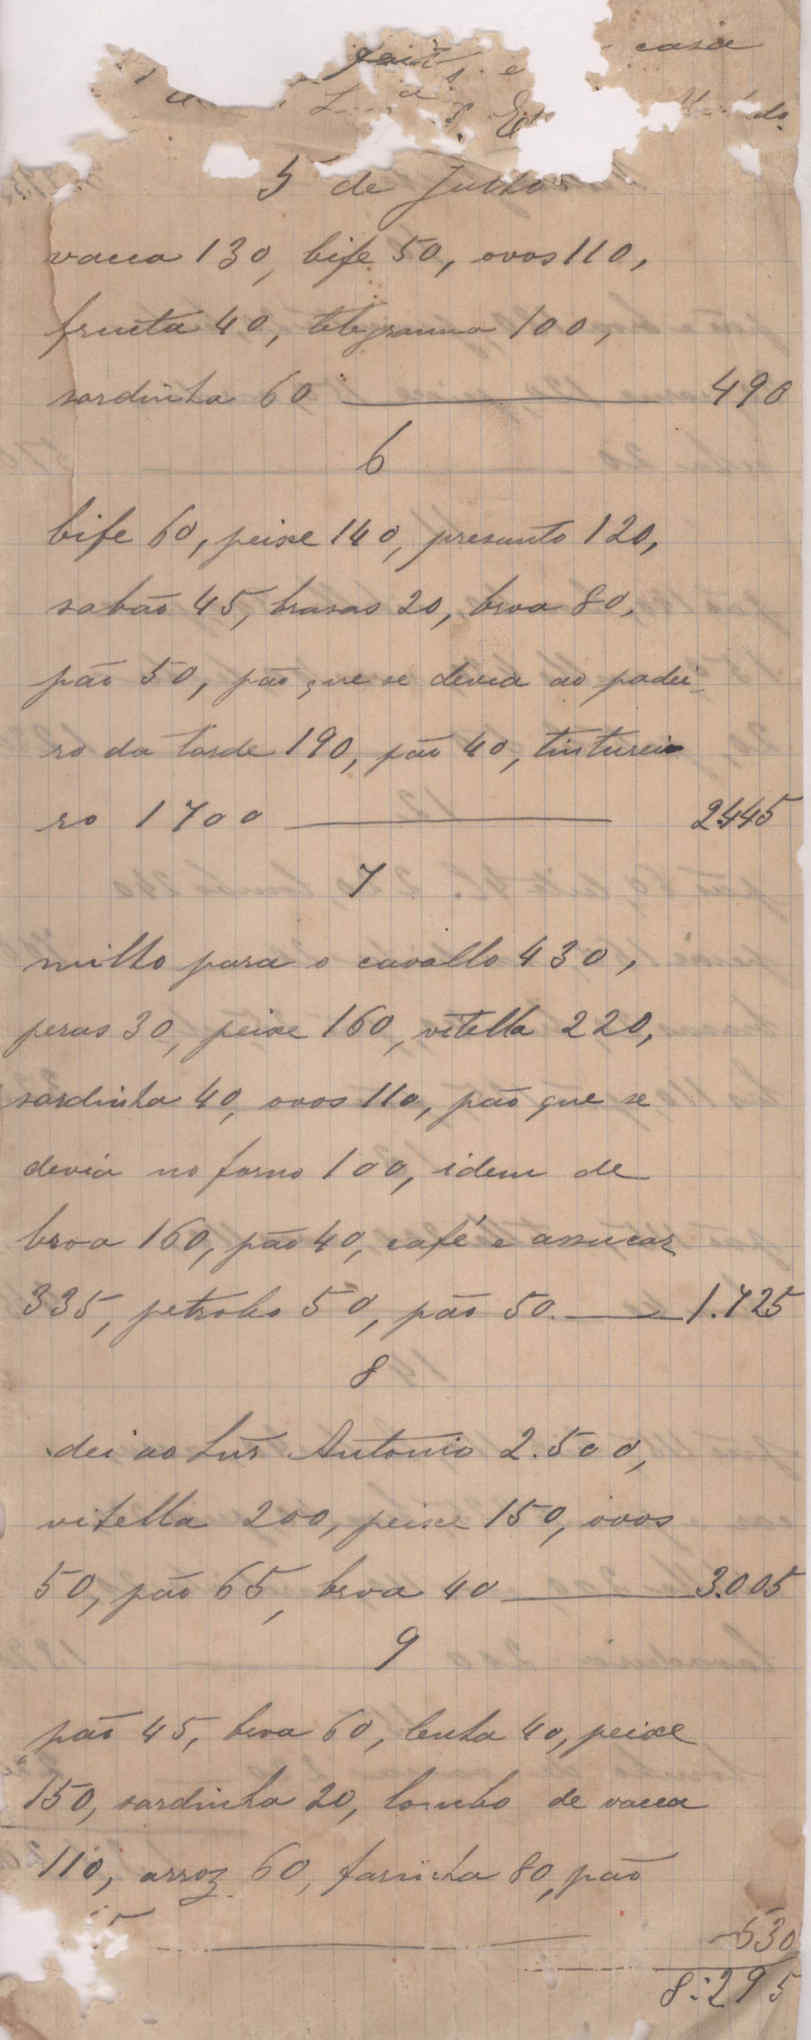 casa
5 de Julho
vacca 130, bife 50, ovos 110,
fructa 40, telegramma 100,
sardinha 60 490
6
bife 60, peixe 140, presunto 120,
sabão 45, brasas 20, broa 80,
pão 50, pão que se devia ao padei-
ro da tarde 190, pão 40, tinturei
ro 1700 2445
7
milho para o cavallo 430,
peras 30, peixe 160, vitella 220,
sardinha 40, ovos 110, pão que se
devia no forno 100, idem de
broa 160, pão 40, café e assucar
335, petroleo 50, pão 50 1.725
8
dei ao Luis Antonio 2.500,
vitella 200, peixe 150, ovos
50, pão 65, broa 40 3.005
9
pão 45, broa 60, lenha 40, peixe
150, sardinha 20, lombo de vacca
110, arroz 60, farinha 80, pão
8:295